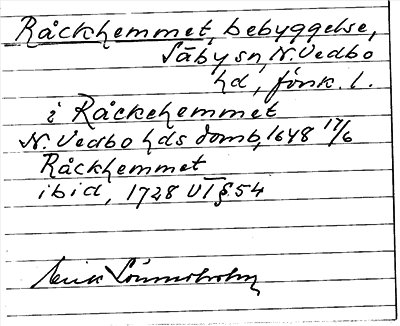 Råckhemmet, bebyggelse,
Säby sn, N. Vedbo
hd, Jönk. l.
i Råckehemmet
N. Vedbo hds domb, 1648 17/6
Råckhemmet
ibid, 1728 VT § 54
Erik